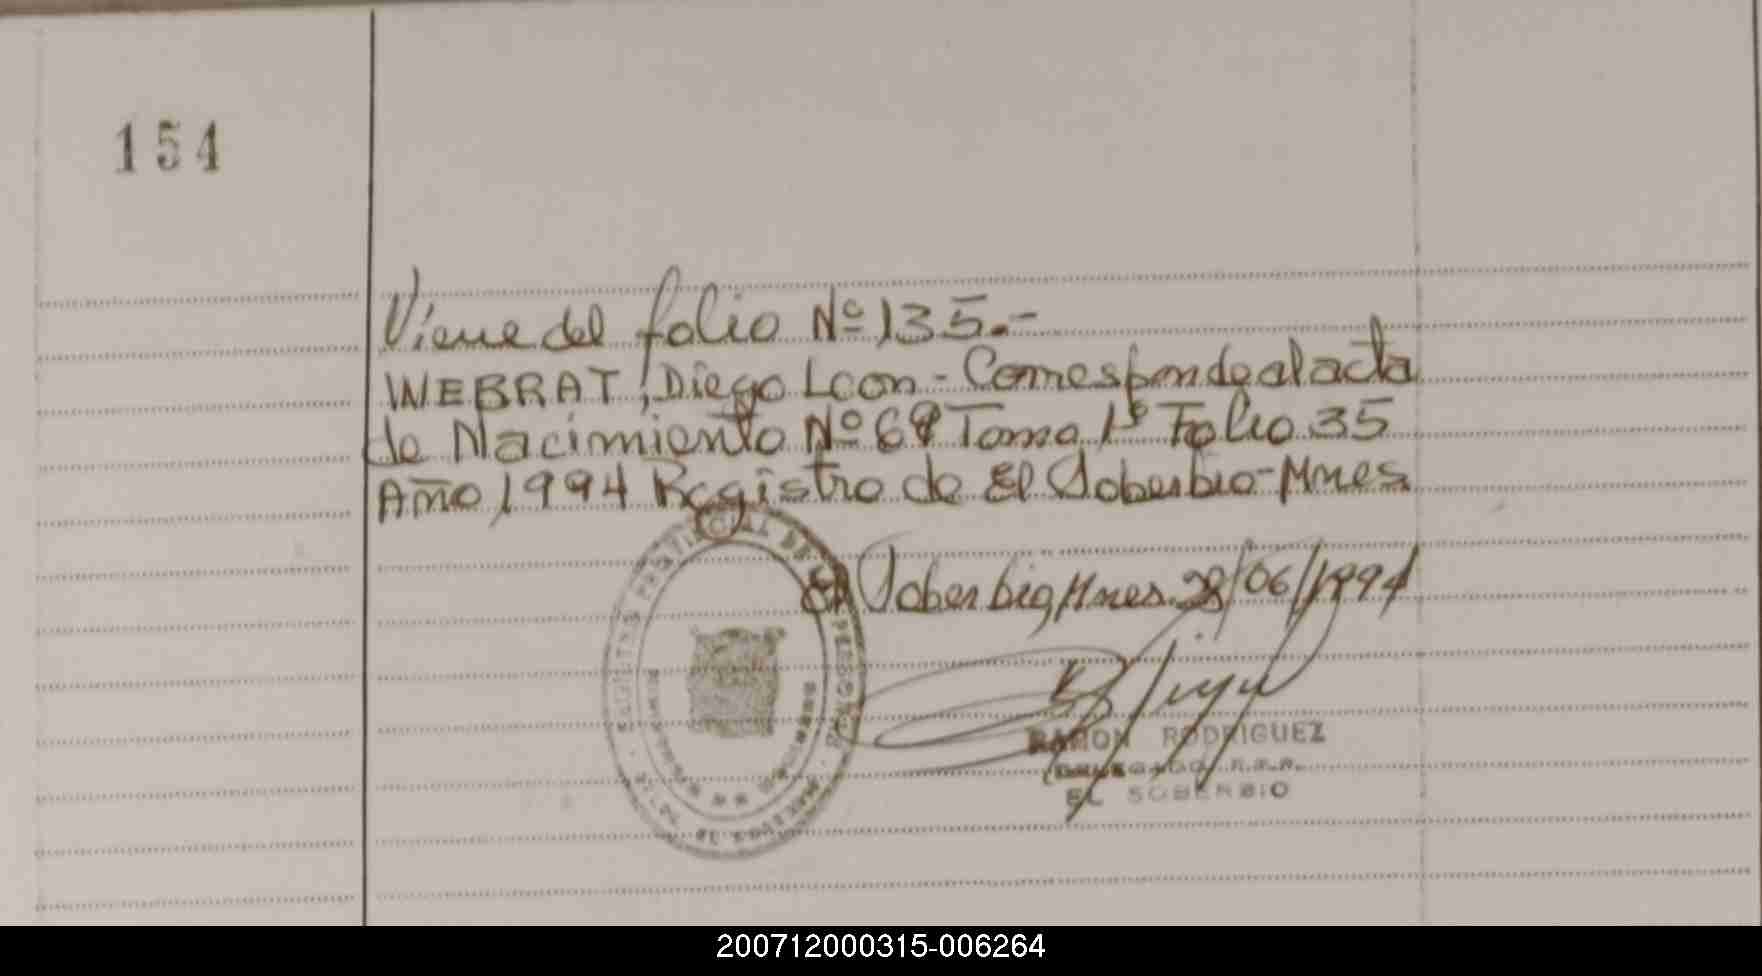 154
Viene del folio Nº 135.-
WEBRAT, Diego Leon - Corresponde al acta
de Nacimiento Nº 68 Tomo 1º Folio 35
Año 1994 Registro de El Soberbio-Mnes
El Soberbio, Mnes. 28/06/1994
RAMON RODRIGUEZ
DELEGADO R.P.P.
EL SOBERBIO
200712000315-006264